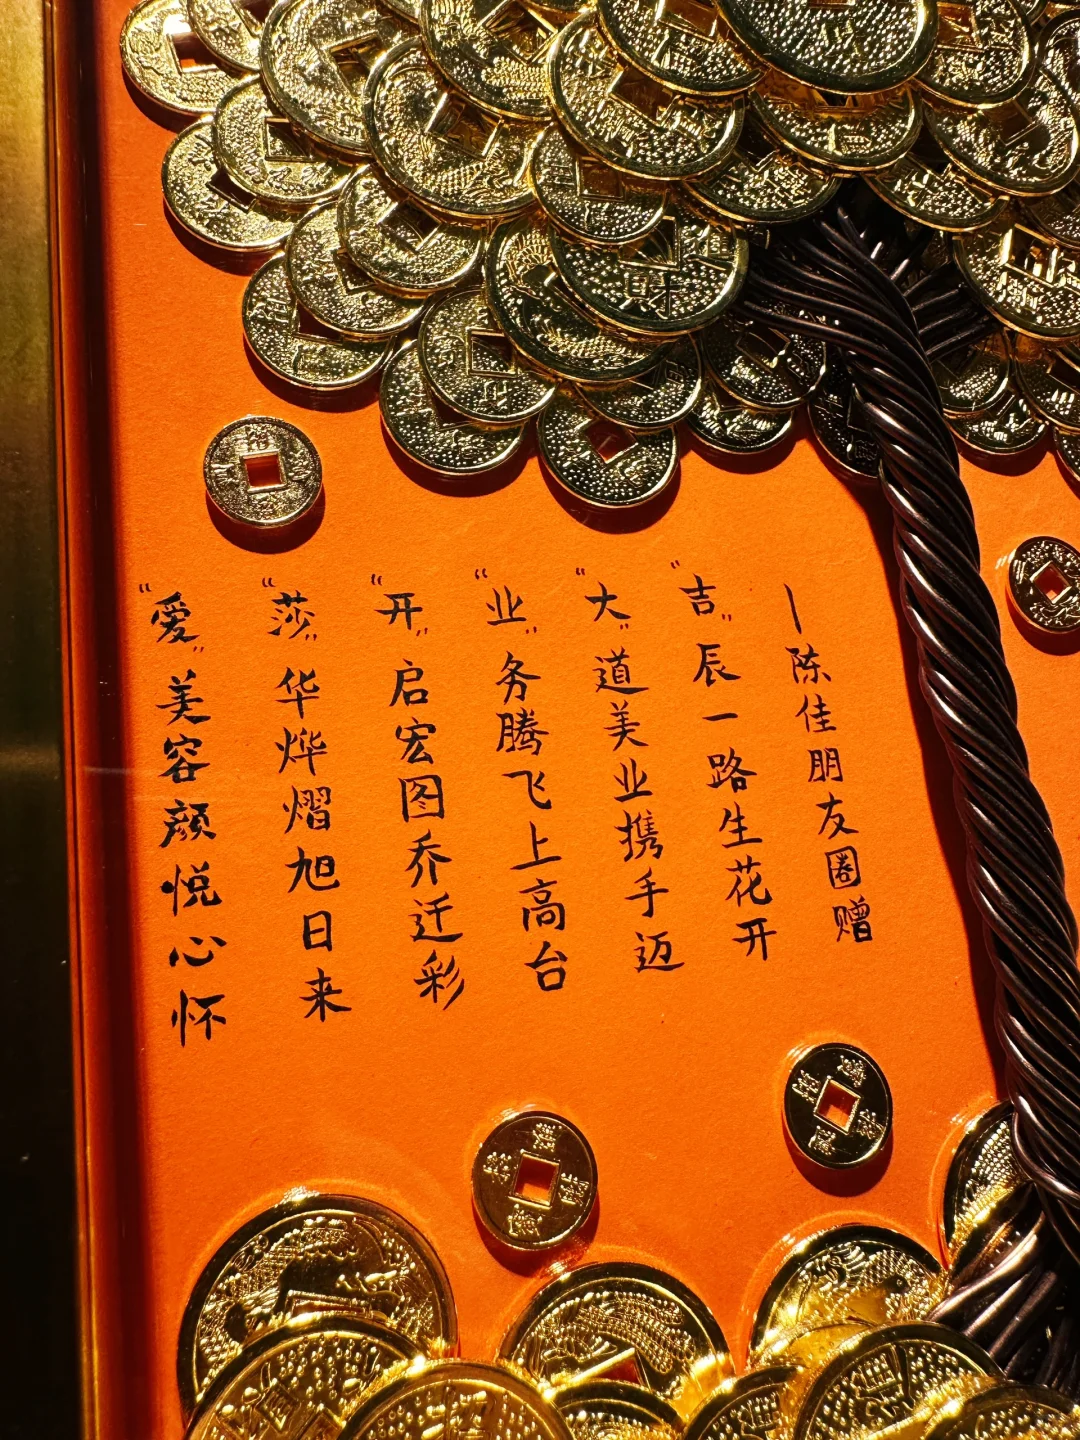 “愛”美容颜悦心怀
“莎”华烨熠旭日来
“开”启宏图乔迁彩
“业”务腾飞上高台
“大”道美业携手迈
“吉”辰一路生花开
—陈佳朋友圈赠
進
財